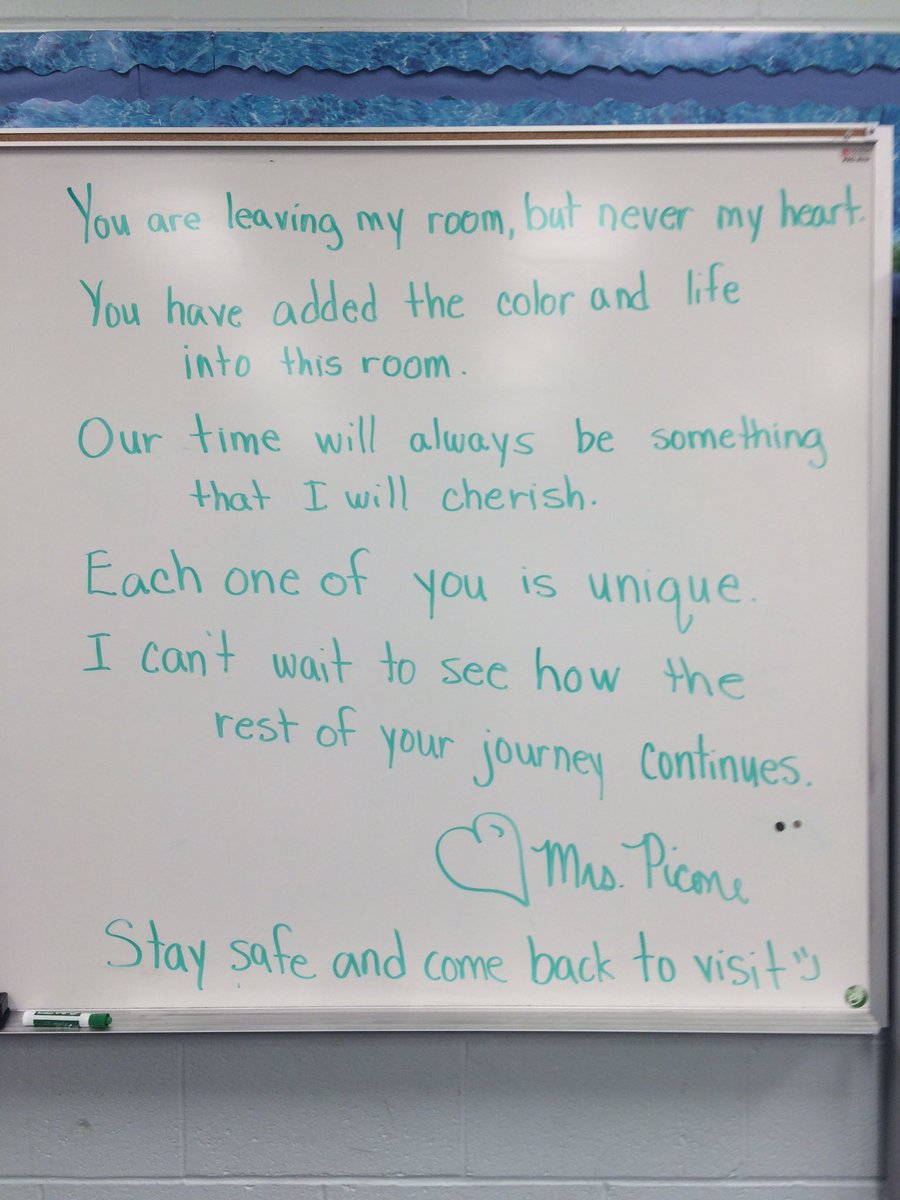 You are leaving my room, but never my heart.
You have added the color and life
into this room.
Our time will always be something
that I will cherish.
Each one of you is unique.
I can't wait to see how the
rest of your journey continues.
Mrs. Picone
Stay safe and come back to visit